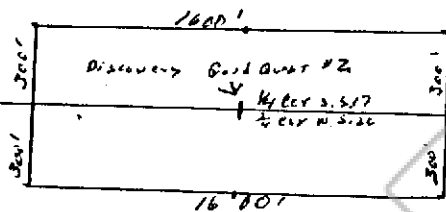 1600'
300' 300'
Discovery Gold Quart #2
1/4 Cor S. S. 17
1/4 Cor N. S. 20
300' 300
1600'